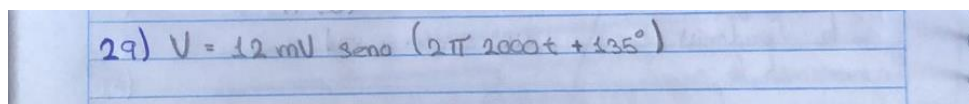 29) V = 12 mV seno (2π 2000t + 135°)